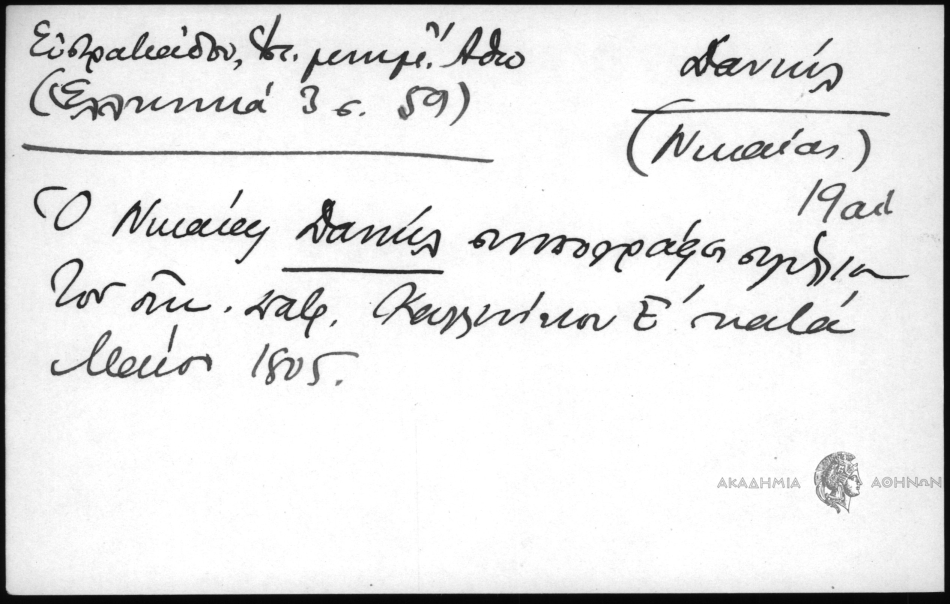 Εὐστρατιάδου, Ἱστ. μνημ. Ἄθω
(Ἑλληνικά 3 σ. 59)
Δανιήλ
(Νικαίας)
19 αἰ.
Ὁ Νικαίας Δανιήλ συνυπογράφει σιγίλλιον
τοῦ οἰκ. πατρ. Καλλινίκου Ε΄ κατά
Μάιον 1805.
ΑΚΑΔΗΜΙΑ ΑΘΗΝΩΝ